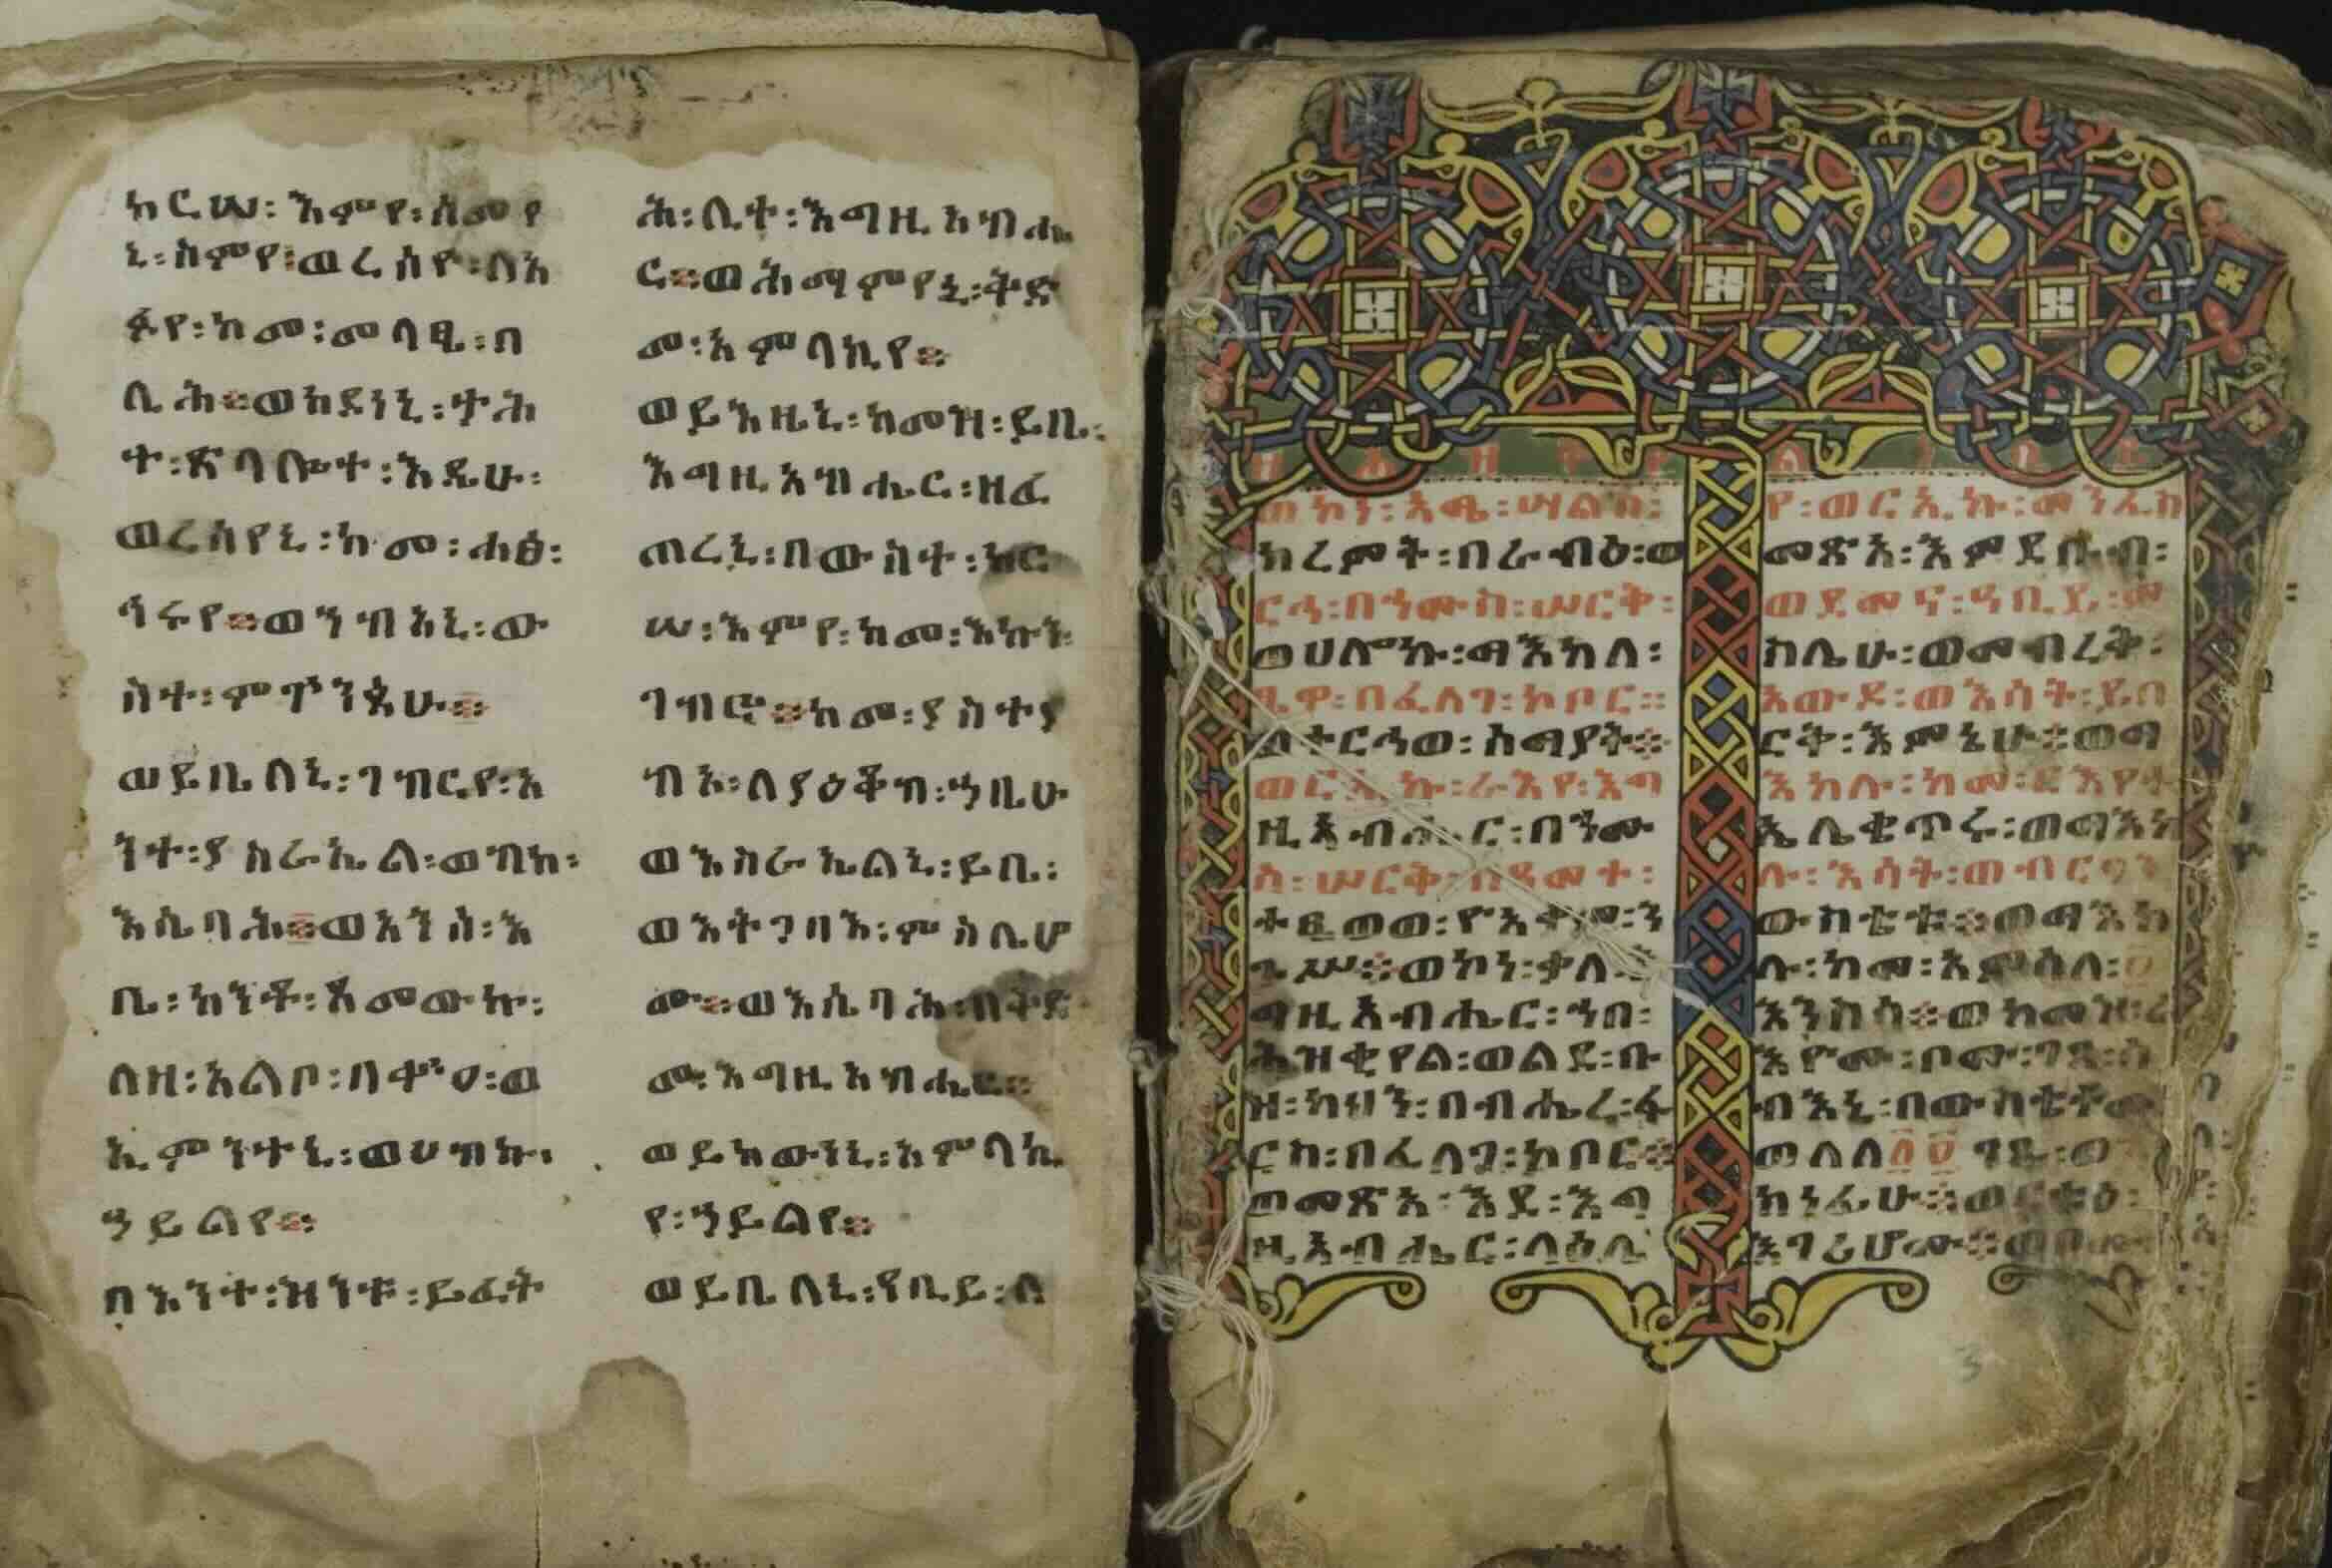 ከርሠ፡ እምየ፡ ሰመየ
ኒ፡ ስምየ፡ ወረሰዮ፡ ለአ
ፉየ፡ ከመ፡ መላፂ፡ በ
ሊሕ፡፡ ወከደነኒ፡ ታሕ
ተ፡ ጽላሎተ፡ እዴሁ፡
ወረሰየኒ፡ ከመ፡ ሐፅ፡
ኅሩየ፡፡ ወኀብአኒ፡ ው
ስተ፡ ምጕንጳሁ፡፡
ወይቤለኒ፡ ገብርየ፡ አ
ንተ፡ ያስራኤል፡ ወብከ፡
እሴባሕ፡፡ ወአንሰ፡ እ
ቤ፡ ከንቶ፡ ጻመውኩ፡
ለዘ፡ አልቦ፡ በቍዐ፡ ወ
ኢምንተኒ፡ ወሀብኩ፡
ኃይልየ፡፡
በእንተ፡ ዝንቱ፡ ይፈት
ሕ፡ ሊተ፡ እግዚአብሔ
ር፡፡ ወሕማምየኒ፡ ቅድ
መ፡ አምላኪየ፡፡
ወይእዜኒ፡ ከመዝ፡ ይቤ፡
እግዚአብሔር፡ ዘፈ
ጠረኒ፡ በውስተ፡ ከር
ሠ፡ እምየ፡ ከመ፡ እኩን፡
ገብሮ፡፡ ከመ፡ ያስተያ
ብእ፡ ለያዕቆብ፡ ኀቤሁ
ወእስራኤልኒ፡ ይቤ፡
ወእትጋባእ፡ ምስሌሆ
ሙ፡፡ ወእሴባሕ፡ በቅድ
መ፡ እግዚአብሔር፡፡
ወይከውነኒ፡ አምላኪ
የ፡ ኃይልየ፡፡
ወይቤለኒ፡ የቢይ፡ ለ
ወኮነ፡ አሜ፡ ሣልስ፡
ክረምት፡ በራብዕ፡ ወ
ርኅ፡ በኀሙስ፡ ሠርቅ፡
ወሀሎኩ፡ ማእከለ፡
ፄዋ፡ በፈለገ፡ ኮቦር፡፡
ወተርኅወ፡ ሰማያት፡፡
ወርኢኩ፡ ራእየ፡ እግ
ዚአብሔር፡ በኀሙ
ስ፡ ሠርቅ፡ በዓመተ፡
ተፄወወ፡ ዮአቄም፡ ን
ጉሥ፡፡ ወኮነ፡ ቃለ፡ እ
ግዚአብሔር፡ ኀበ፡
ሕዝቂየል፡ ወልደ፡ ቡ
ዝ፡ ካህን፡ በብሔረ፡ ፋ
ርስ፡ በፈለገ፡ ኮቦር፡፡
ወመጽአ፡ እደ፡ እግ
ዚአብሔር፡ ላዕሌ
የ፡ ወርኢኩ፡ መንፈስ
መጽአ፡ እምደቡብ፡
ወደመና፡ ዓቢይ፡ ም
ስሌሁ፡ ወመብረቅ፡
አውዶ፡ ወእሳት፡ ይበ
ርቅ፡ እምኔሁ፡፡ ወማ
እከሉ፡ ከመ፡ ርእየተ
ኤሌቂጥሩ፡ ወማእከ
ሉ፡ እሳት፡ ወብርሃን
ውስቴቱ፡፡ ወማእከ
ሉ፡ ከመ፡ አምሳለ፡ ፬
እንስሳ፡፡ ወከመዝ፡ ራ
እዮሙ፡ ቦሙ፡ ገጸ፡ ሰ
ብእኒ፡ በውስቴቶሙ
ወለለ፬፬ ገጹ፡ ወ
ክነፊሁ፡፡ ወርቱዕ፡
እገሪሆሙ፡፡